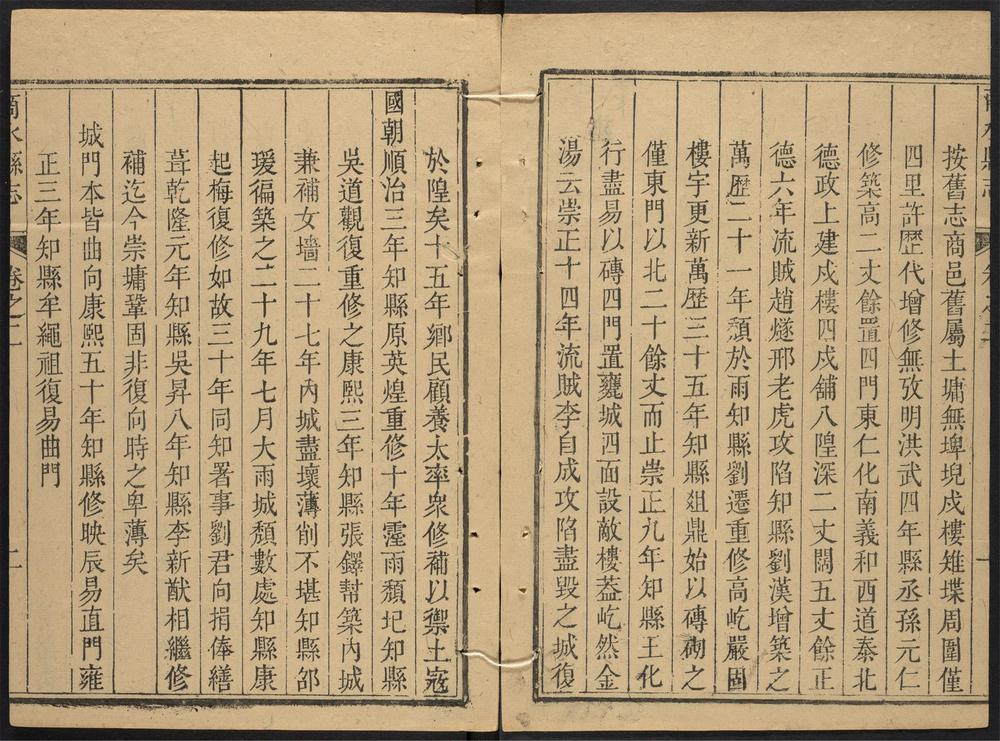 商水縣志
卷之二
一
按舊志商邑舊屬土墉無埤堄戍樓雉堞周圍僅
四里許歷代增修無攷明洪武四年縣丞孫元仁
修築高二丈餘置四門東仁化南義和西道泰北
德政上建戍樓四戍舖八隍深二丈闊五丈餘正
德六年流賊趙燧邢老虎攻陷知縣劉漢增築之
萬歷二十一年頹於雨知縣劉遷重修高屹嚴固
樓宇更新萬歷三十五年知縣俎鼎始以磚砌之
僅東門以北二十餘丈而止崇正九年知縣王化
行盡易以磚四門置甕城四面設敵樓葢屹然金
湯云崇正十四年流賊李自成攻陷盡毀之城復
於隍矣十五年鄉民顧養太率衆修補以禦土寇
國朝順治三年知縣原英煌重修十年霪雨頹圮知縣
吳道觀復重修之康熙三年知縣張鐸幇築內城
兼補女墻二十七年內城盡壞薄削不堪知縣邵
瑗徧築之二十九年七月大雨城頹數處知縣康
起梅復修如故三十年同知署事劉君向捐俸繕
葺乾隆元年知縣吳昇八年知縣李新猷相繼修
補迄今崇墉鞏固非復向時之卑薄矣
城門本皆曲向康熙五十年知縣修映辰易直門雍
正三年知縣牟繩祖復易曲門
商水縣志
卷之二
二